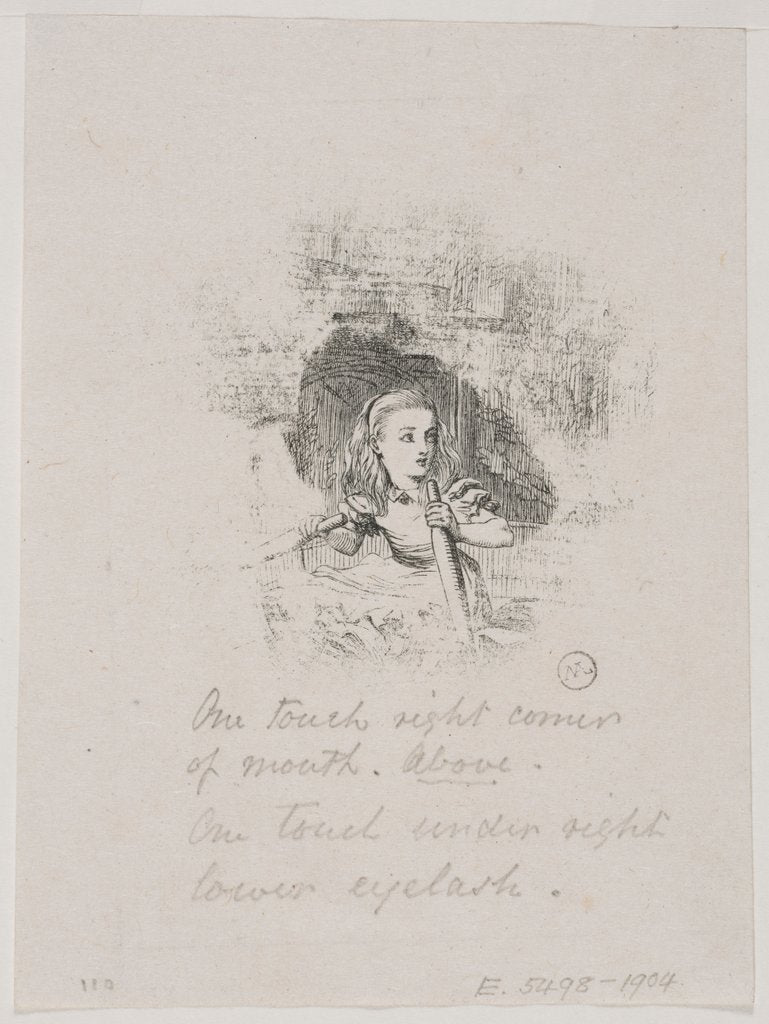 One touch right corner
of mouth. Above.
One touch under right
lower eyelash.
110
E. 5498-1904